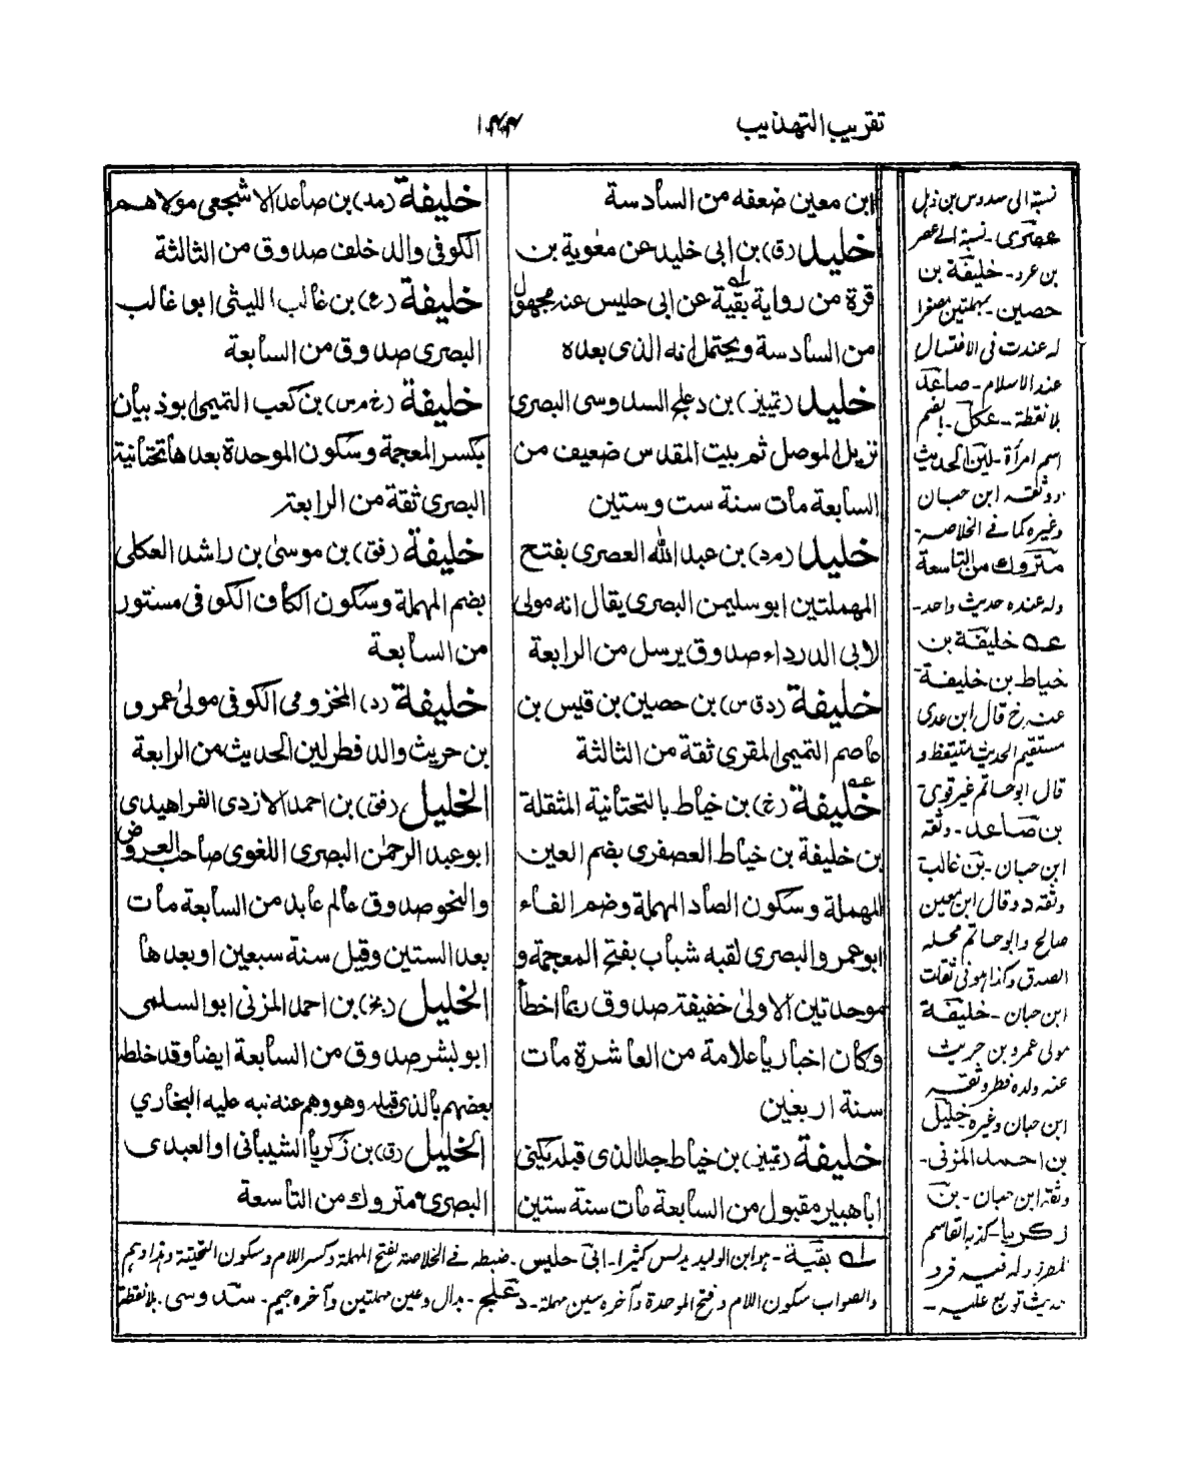 تقريب التهذيب
١٤٤
ابن معين ضعفه من السادسة
خليل (ق) بن ابى خليد عن معوية بن
قرة من رواية بقية عن ابى حليس عنه مجهول
من السادسة ويحتمل انه الذى بعده
خليل (تميز) بن دعلج السدوسى البصرى
نزيل الموصل ثم بيت المقدس ضعيف من
السابعة مات سنة ست وستين
خليل (مد) بن عبد الله العصرى بفتح
المهملتين ابو سليمن البصرى يقال انه مولى
لابى الدرداء صدوق يرسل من الرابعة
خليفة (دق س) بن حصين بن قيس بن
عاصم التميمى المقرى ثقة من الثالثة
خليفة (خ) بن خياط بالتحتانية المثقلة
بن خليفة بن خياط العصفرى بضم العين
المهملة وسكون الصاد المهملة وضم الفاء
ابو عمرو البصرى لقبه شباب بفتح المعجمة و
موحدتين الاولى خفيفة صدوق ربما اخطأ
وكان اخباريا علامة من العاشرة مات
سنة اربعين
خليفة (تميز) بن خياط جد الذى قبله يكنى
ابا هبير مقبول من السابعة مات سنة ستين
خليفة (مد) بن صاعد الاشجعى مولاهم
الكوفى والد خلف صدوق من الثالثة
خليفة (ع) بن غالب الليثى ابو غالب
البصرى صدوق من السابعة
خليفة (خ م س) بن كعب التميمى ابو ذبيان
بكسر المعجمة وسكون الموحدة بعدها تحتانية
البصرى ثقة من الرابعة
خليفة (فق) بن موسى بن راشد العكلى
بضم المهملة وسكون الكاف الكوفى مستور
من السابعة
خليفة (د) المخزومى الكوفى مولى عمرو
بن حريث والد فطر لين الحديث من الرابعة
الخليل (فق) بن احمد الازدى الفراهيدى
ابو عبد الرحمن البصرى اللغوى صاحب العروض
والنحو صدوق عالم عابد من السابعة مات
بعد الستين وقيل سنة سبعين او بعدها
الخليل (بخ) بن احمد المزنى ابو السلمى
ابو بشر صدوق من السابعة ايضا وقد خلطه
بعضهم بالذى قبله وهو وهم عنه نبه عليه البخاري
الخليل (ق) بن زكريا الشيبانى او العبدى
البصرى متروك من التاسعة
نسبة الى سدوس بن ذهل
عصرى - نسبة الى عصر
بن عرد - خليفة بن
حصين - بمهملتين مصغرا
له عندت فى الاغتسال
عند الاسلام - صاعد
بلا نقطة - عكل - بضم
اسم امرأة - لين الحديث
ووثقه ابن حبان
وغيره كما فى الخلاصه -
متروك من التاسعة
وله عنده حديث واحد -
عـه خليفة بن
خياط بن خليفة -
عنه خ قال ابن عدى
مستقيم الحديث متيقظ و
قال ابو حاتم غير قوى
بن صاعد - وثقه
ابن حبان - بن غالب
وثقه د وقال ابن معين
صالح وابو حاتم محله
الصدق وكذا هو فى ثقات
ابن حبان - خليفة
مولى عمرو بن حريث
عنه ولده فطر وثقه
ابن حبان وغيره خليل
بن احمد المزنى -
وثقه ابن حبان - بن
زكريا - كذبه القاسم
المطرز وله فيه فرد
حديث توبع عليه -
له بقية - هو ابن الوليد يدلس كثيرا - ابى حليس - ضبطه فى الخلاصة بفتح المهملة وكسر اللام وسكون التحتية وهذا وهم
والصواب سكون اللام وفتح الموحدة وآخره سين مهملة - دعلج - بدال وعين مهملتين وآخره جيم - سدوسى - بلا نقطة